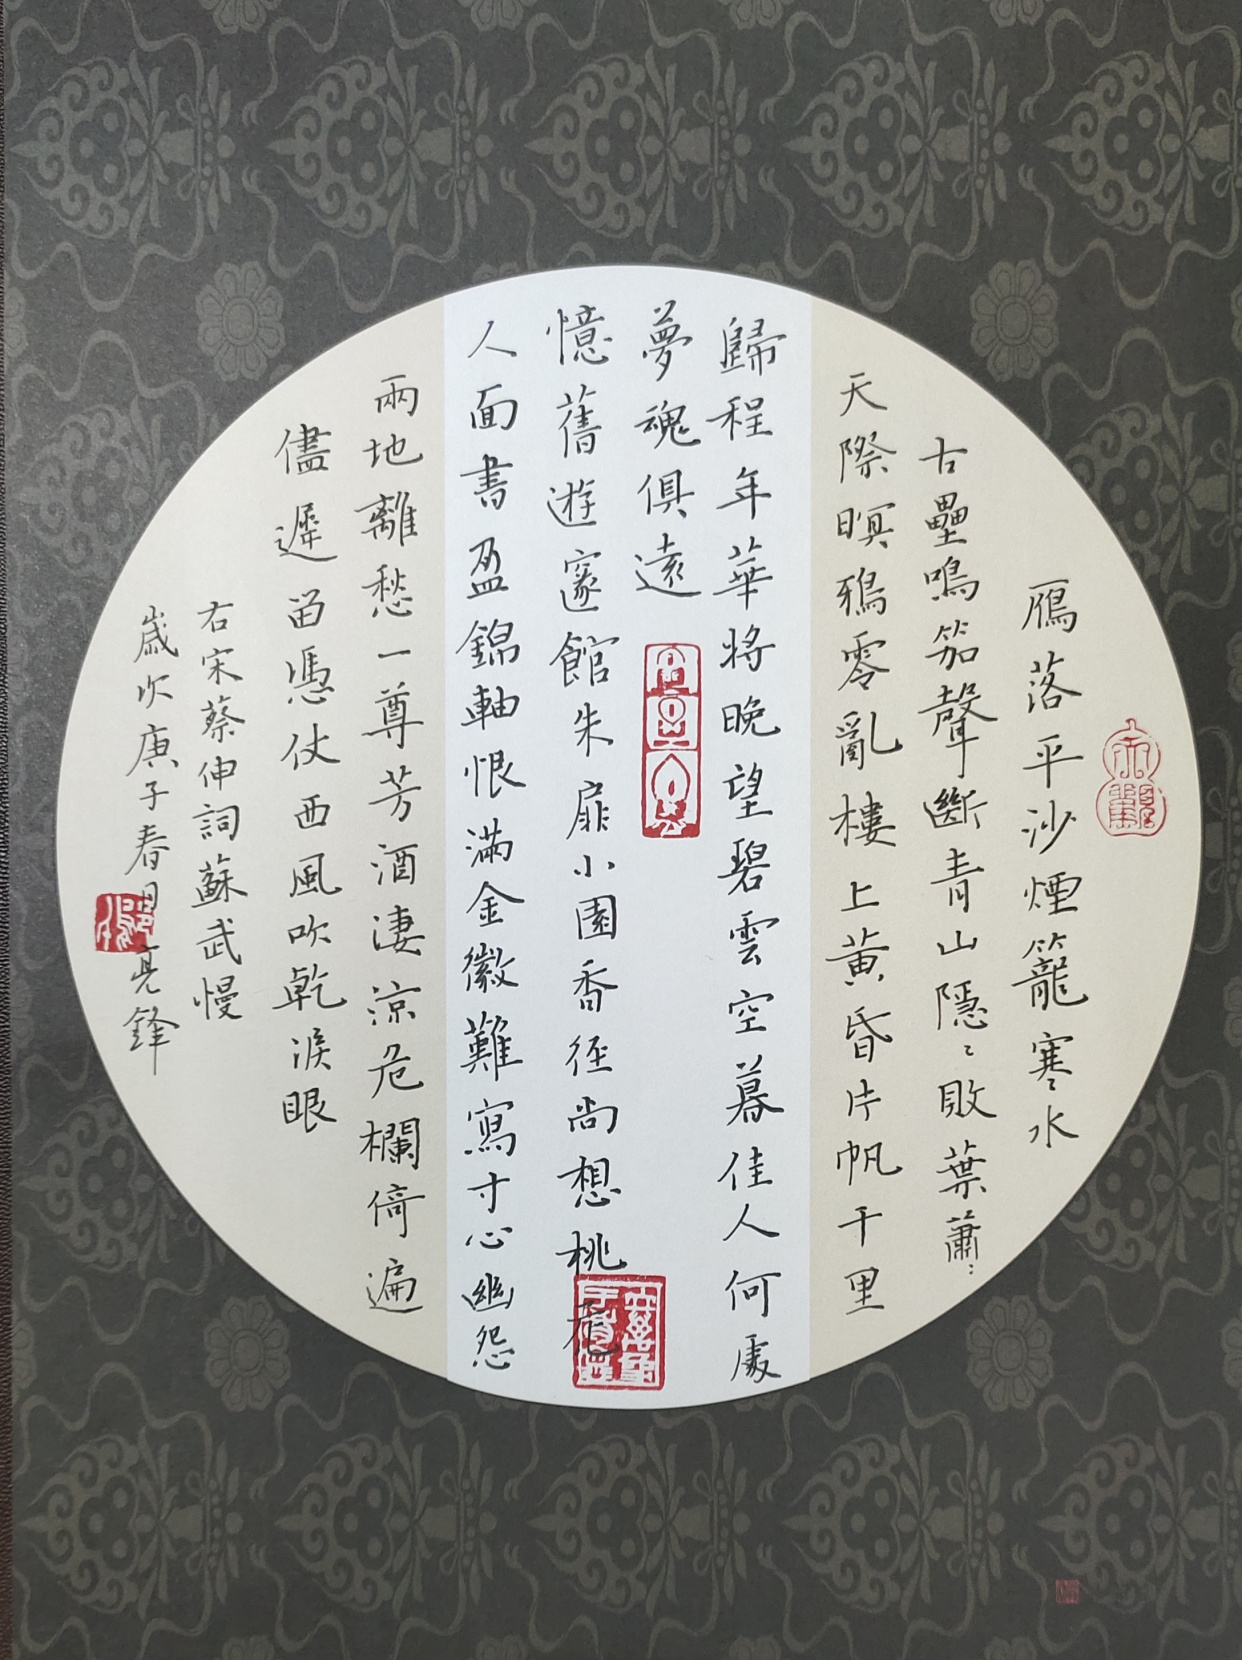 雁落平沙煙籠寒水
古壘鳴笳聲斷青山隱〻敗葉蕭〻
天際暝鴉零亂樓上黃昏片帆千里
歸程年華將晚望碧雲空暮佳人何處
夢魂俱遠
憶舊遊邃館朱扉小園香徑尚想桃花
人面書盈錦軸恨滿金徽難寫寸心幽怨
兩地離愁一尊芳酒淒涼危欄倚遍
儘遲留憑仗西風吹乾淚眼
右宋蔡伸詞蘇武慢
歲次庚子春月亮鋒